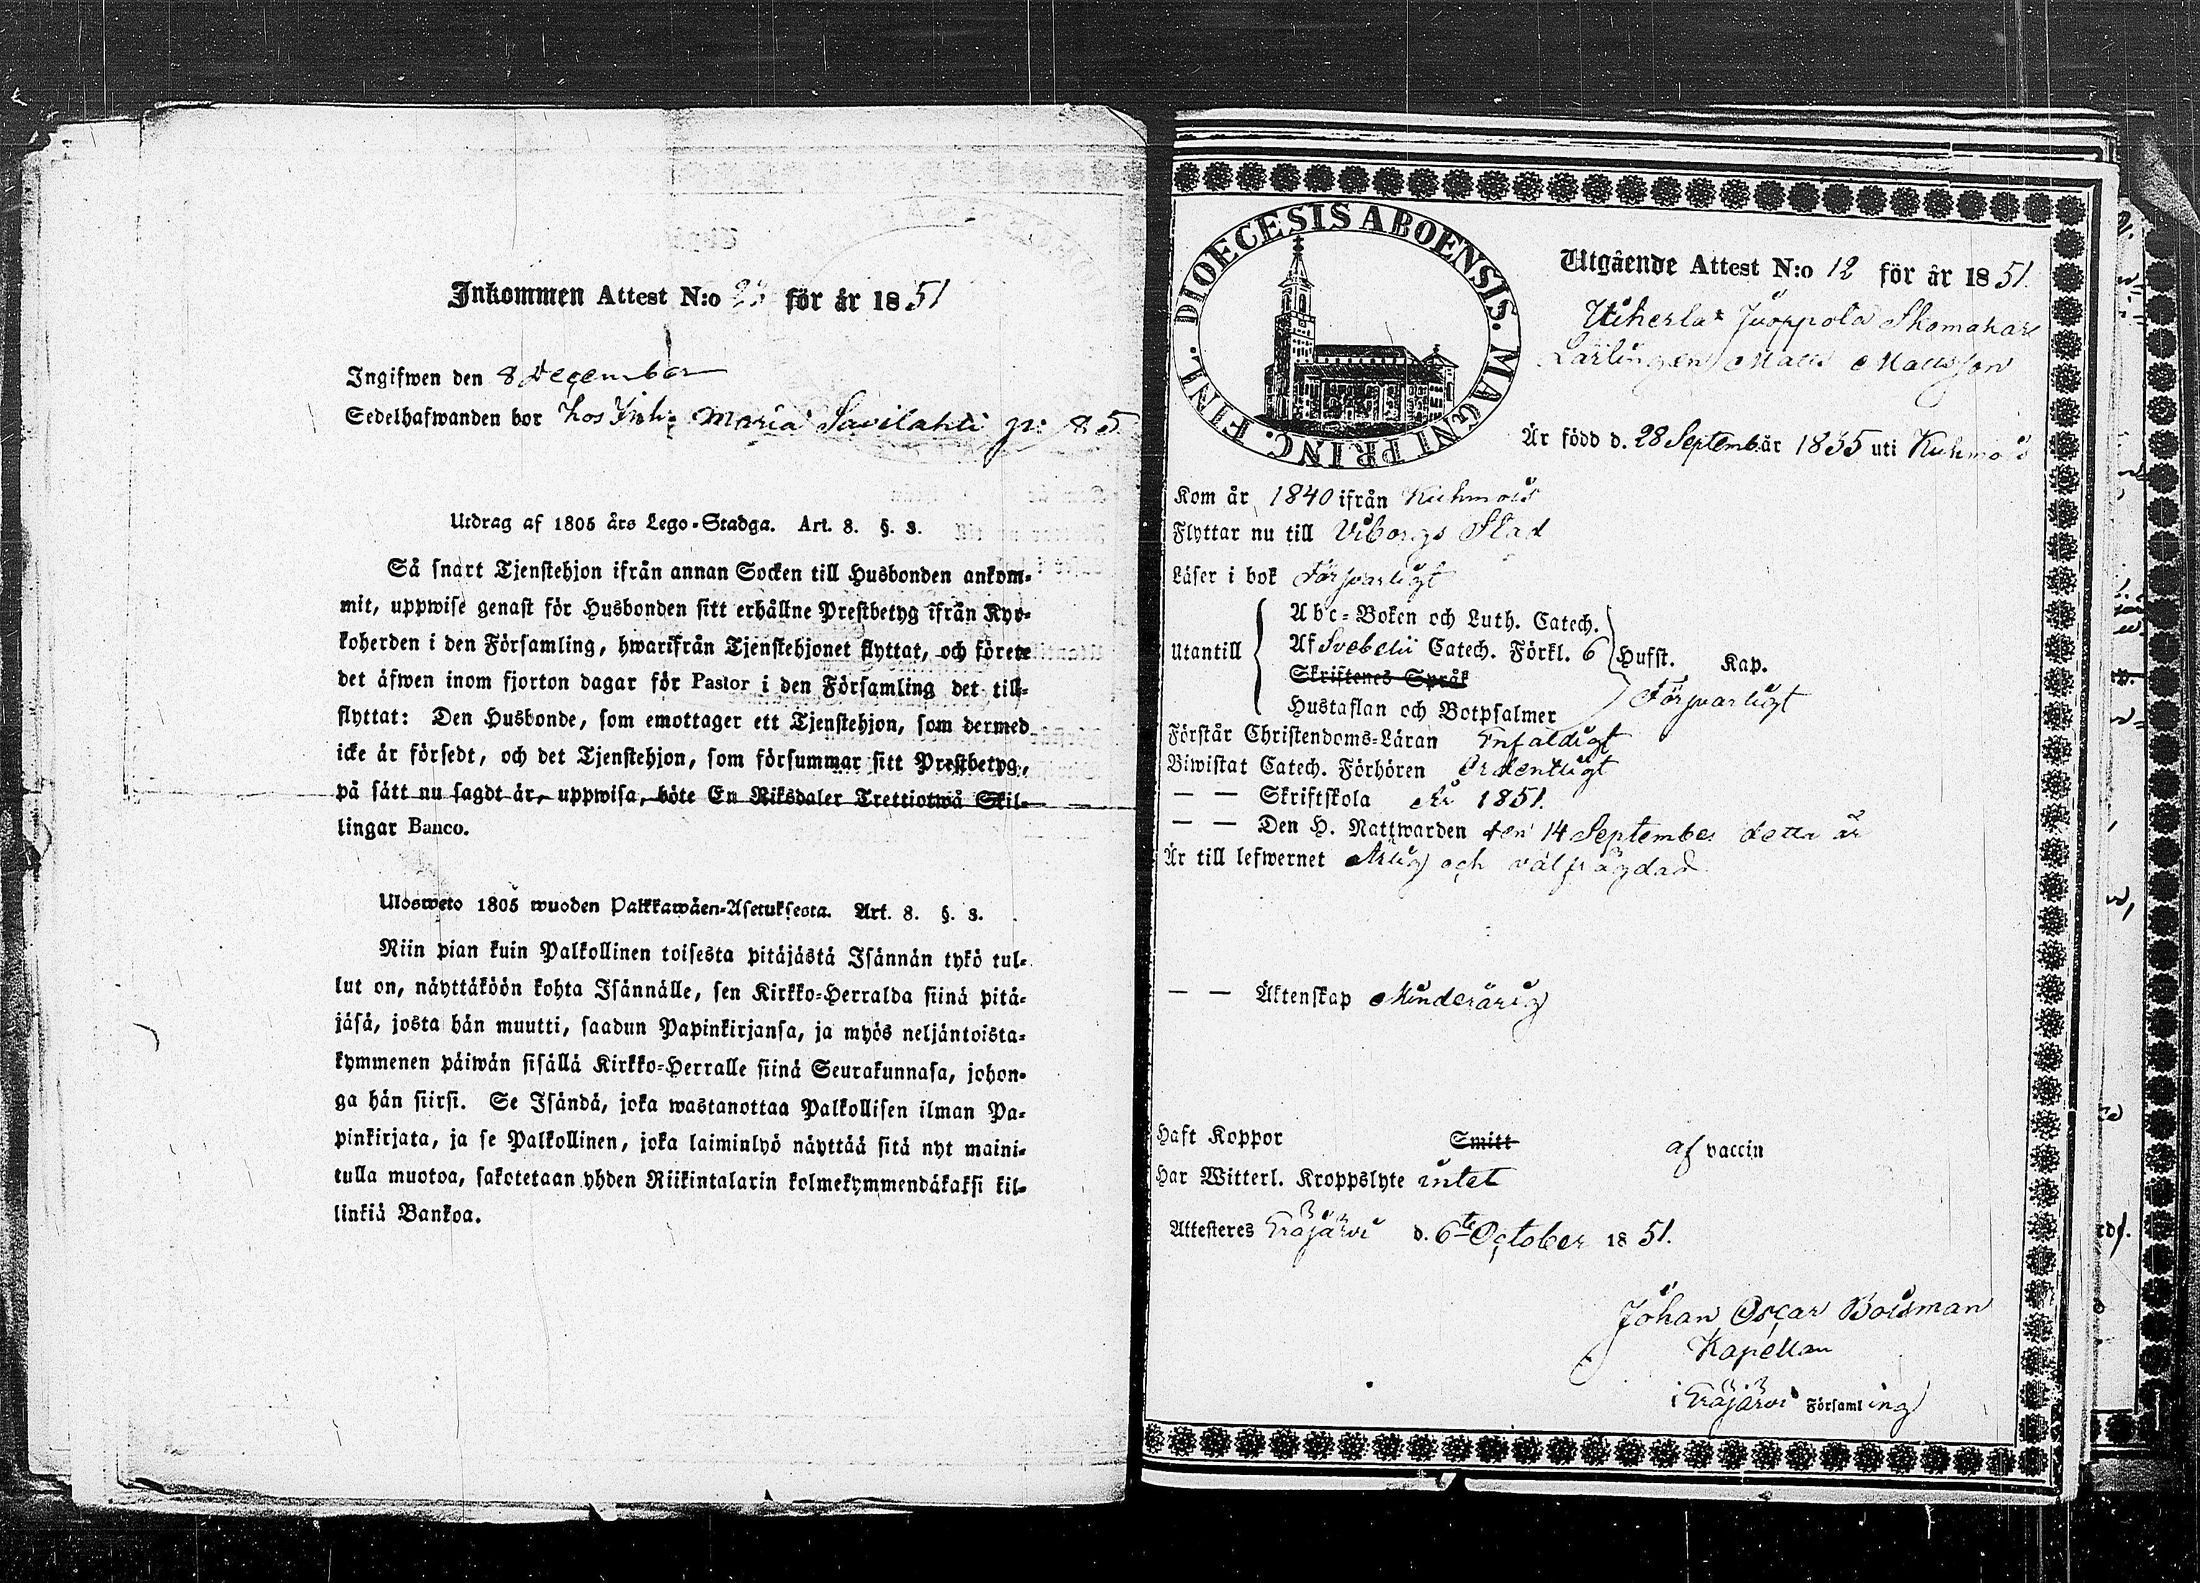 Inkommen Attest N:o 23 för år 1851
Ingifwen den 8 December
Sedelhafwanden bor hos Maria Savilahti 85
Utdrag af 1805 års Lego-Stadga. Art. 8. §. 3.
Så snart Tjenstehjon ifrån annan Socken till Husbonden ankom-
mit, uppwise genast för Husbonden sitt erhållne Prestbetyg ifrån Kyr-
koherden i den Församling, hwarifrån Tjenstehjonet flyttat, och förete
det äfwen inom fjorton dagar för Pastor i den Församling det till-
flyttat: Den Husbonde, som emottager ett Tjenstehjon, som dermed
icke är försedt, och det Tjenstehjon, som försummar sitt Prestbetyg,
på sätt nu sagdt är, uppwisa, böte En Riksdaler Trettiotwå Skil-
lingar Banco.
Ulosweto 1805 wuoden Palkkawäen-Asetuksesta. Art. 8. §. 3.
Niin pian kuin Palkollinen toisesta pitäjästä Isännän tykö tul-
lut on, näyttäköön kohta Isännälle, sen Kirkko-Herralda siinä pitä-
jäsä, josta hän muutti, saadun Papinkirjansa, ja myös neljäntoista-
kymmenen päiwän sisällä Kirkko-Herralle siinä Seurakunnasa, johon-
ga hän siirsi. Se Isändä, joka wastanottaa Palkollisen ilman Pa-
pinkirjata, ja se Palkollinen, joka laiminlyö näyttää sitä nyt maini-
tulla muotoa, sakotetaan yhden Riikintalarin kolmekymmendäkaksi kil-
linkiä Bankoa.
DIOECESIS ABOENSIS. MAGNI PRINC. FINL.
Utgående Attest N:o 12 för år 1851.
Uiherla Juoppola Skomakare
Lärlingen Matts Mattsson
Är född d. 28 September 1835 uti Kuhmois
Kom år 1840 ifrån Kuhmois
Flyttar nu till Viborgs Stad
Läser i bok Försvarligt
Utantill
Abc-Boken och Luth. Catech.
Af Svebelii Catech. Förkl. 6 Hufst. Kap.
Skriftenes Språk
Hustaflan och Botpsalmer Försvarligt
Förstår Christendoms-Läran Enfaldigt
Biwistat Catech. Förhören Ordentligt
— — Skriftskola År 1851.
— — Den H. Nattwarden den 14 September detta år
Är till lefwernet Ärlig och välfrägdad
— — Äktenskap Minderårig
Haft Koppor Smitt af vaccin
Har Witterl. Kroppslyte intet
Attesteres Eräjärvi d. 6te October 1851.
Johan Oscar Boisman
Kapellan
i Eräjärvi Församling